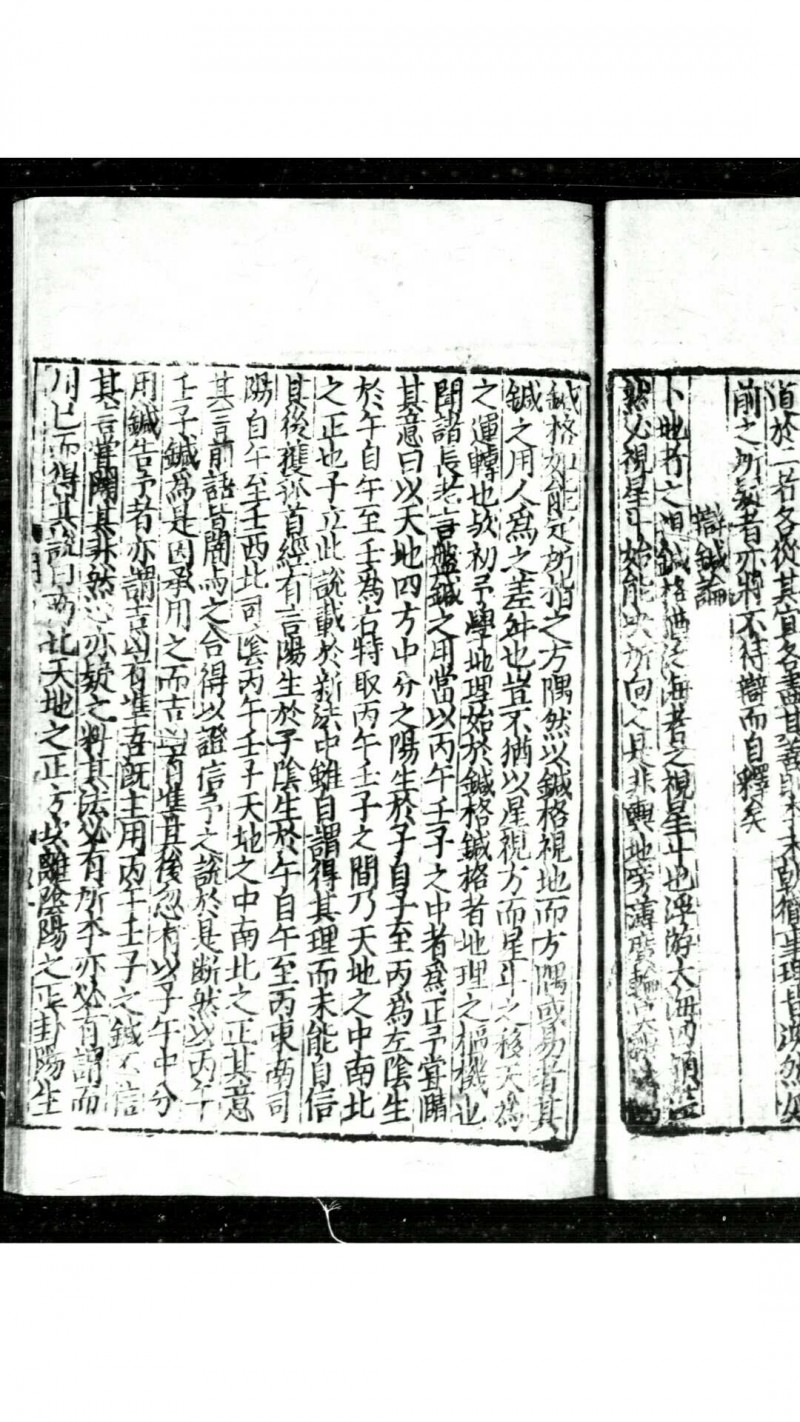 道於二者各從其宜各盡其善則本末
前之所疑者亦將不待辯而自釋矣
辯鍼論
卜地者之視鍼格猶泛海者之視星斗也浮游太海
然必視星斗始能決所向之是非輿地旁薄
鍼格始能定所指之方隅然以鍼格視地而方隅或易者其
鍼之用人為之差舛也豈不猶以星視方而星斗之移天為
之運轉也哉初予學地理始於鍼格鍼格者地理之樞機也
聞諸長老言盤鍼之用當以丙午壬子之中者為正予嘗購
其意曰以天地四方中分之陽生於子自子至丙為左陰生
於午自午至壬為右特取丙午壬子之間乃天地之中南北
之正也予立此說載於新法中雖自謂得其理而未能自信
其後獲狐首經有言陽生於子陰生於午自午至丙東南司
陽自午至壬西北司陰丙午壬子天地之中南北之正其意
其言前話皆閣與之合得以證信予之說於是斷然以丙午
壬子鍼為是因承用之而吉凶有準其後忽有以子午中分
用鍼告予者亦謂吉凶有準吾既主用丙午壬子之鍼不信
其言嘗闢其非然心亦疑之料其法必有所本亦必有謂而
用已而得其說曰南北天地之正方坎離陰陽之正卦陽生